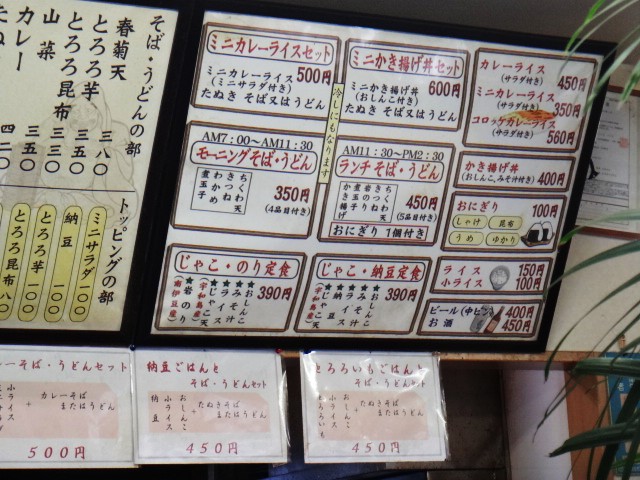 そば・うどんの部
春菊天 三八〇
とろろ芋 三五〇
とろろ昆布 三五〇
山菜 三三〇
カレー 四二〇
たぬき
トッピングの部
ミニサラダ 一〇〇
納豆 一〇〇
とろろ芋 一〇〇
とろろ昆布 八〇
ミニカレーライスセット
ミニカレーライス
(ミニサラダ付き)
500円
たぬき そば又はうどん
冷しにもなります
ミニかき揚げ丼セット
ミニかき揚げ丼
(おしんこ付き)
600円
たぬき そば又はうどん
カレーライス
(サラダ付き)
450円
ミニカレーライス
(サラダ付き)
350円
コロッケカレーライス
(サラダ付き)
560円
AM7:00~AM11:30
モーニングそば・うどん
350円
(4品目付き)
AM11:30~PM2:30
ランチそば・うどん
450円
(5品目付き)
おにぎり 1個付き
かき揚げ丼
(おしんこ,みそ汁付き)
400円
おにぎり 100円
しゃけ 昆布
うめ ゆかり
じゃこ・のり定食
390円
じゃこ・納豆定食
390円
ライス 150円
小ライス 100円
ビール(中ビン) 400円
お酒 450円
そば・うどんセット
カレーそば
またはうどん
500円
納豆ごはんと
そば・うどんセット
納豆
小ライス
おしんこ
+
たぬきそば
またはうどん
450円
とろろいもごはんと
そば・うどんセット
とろろいも
小ライス
おしんこ
+
たぬきそば
またはうどん
450円